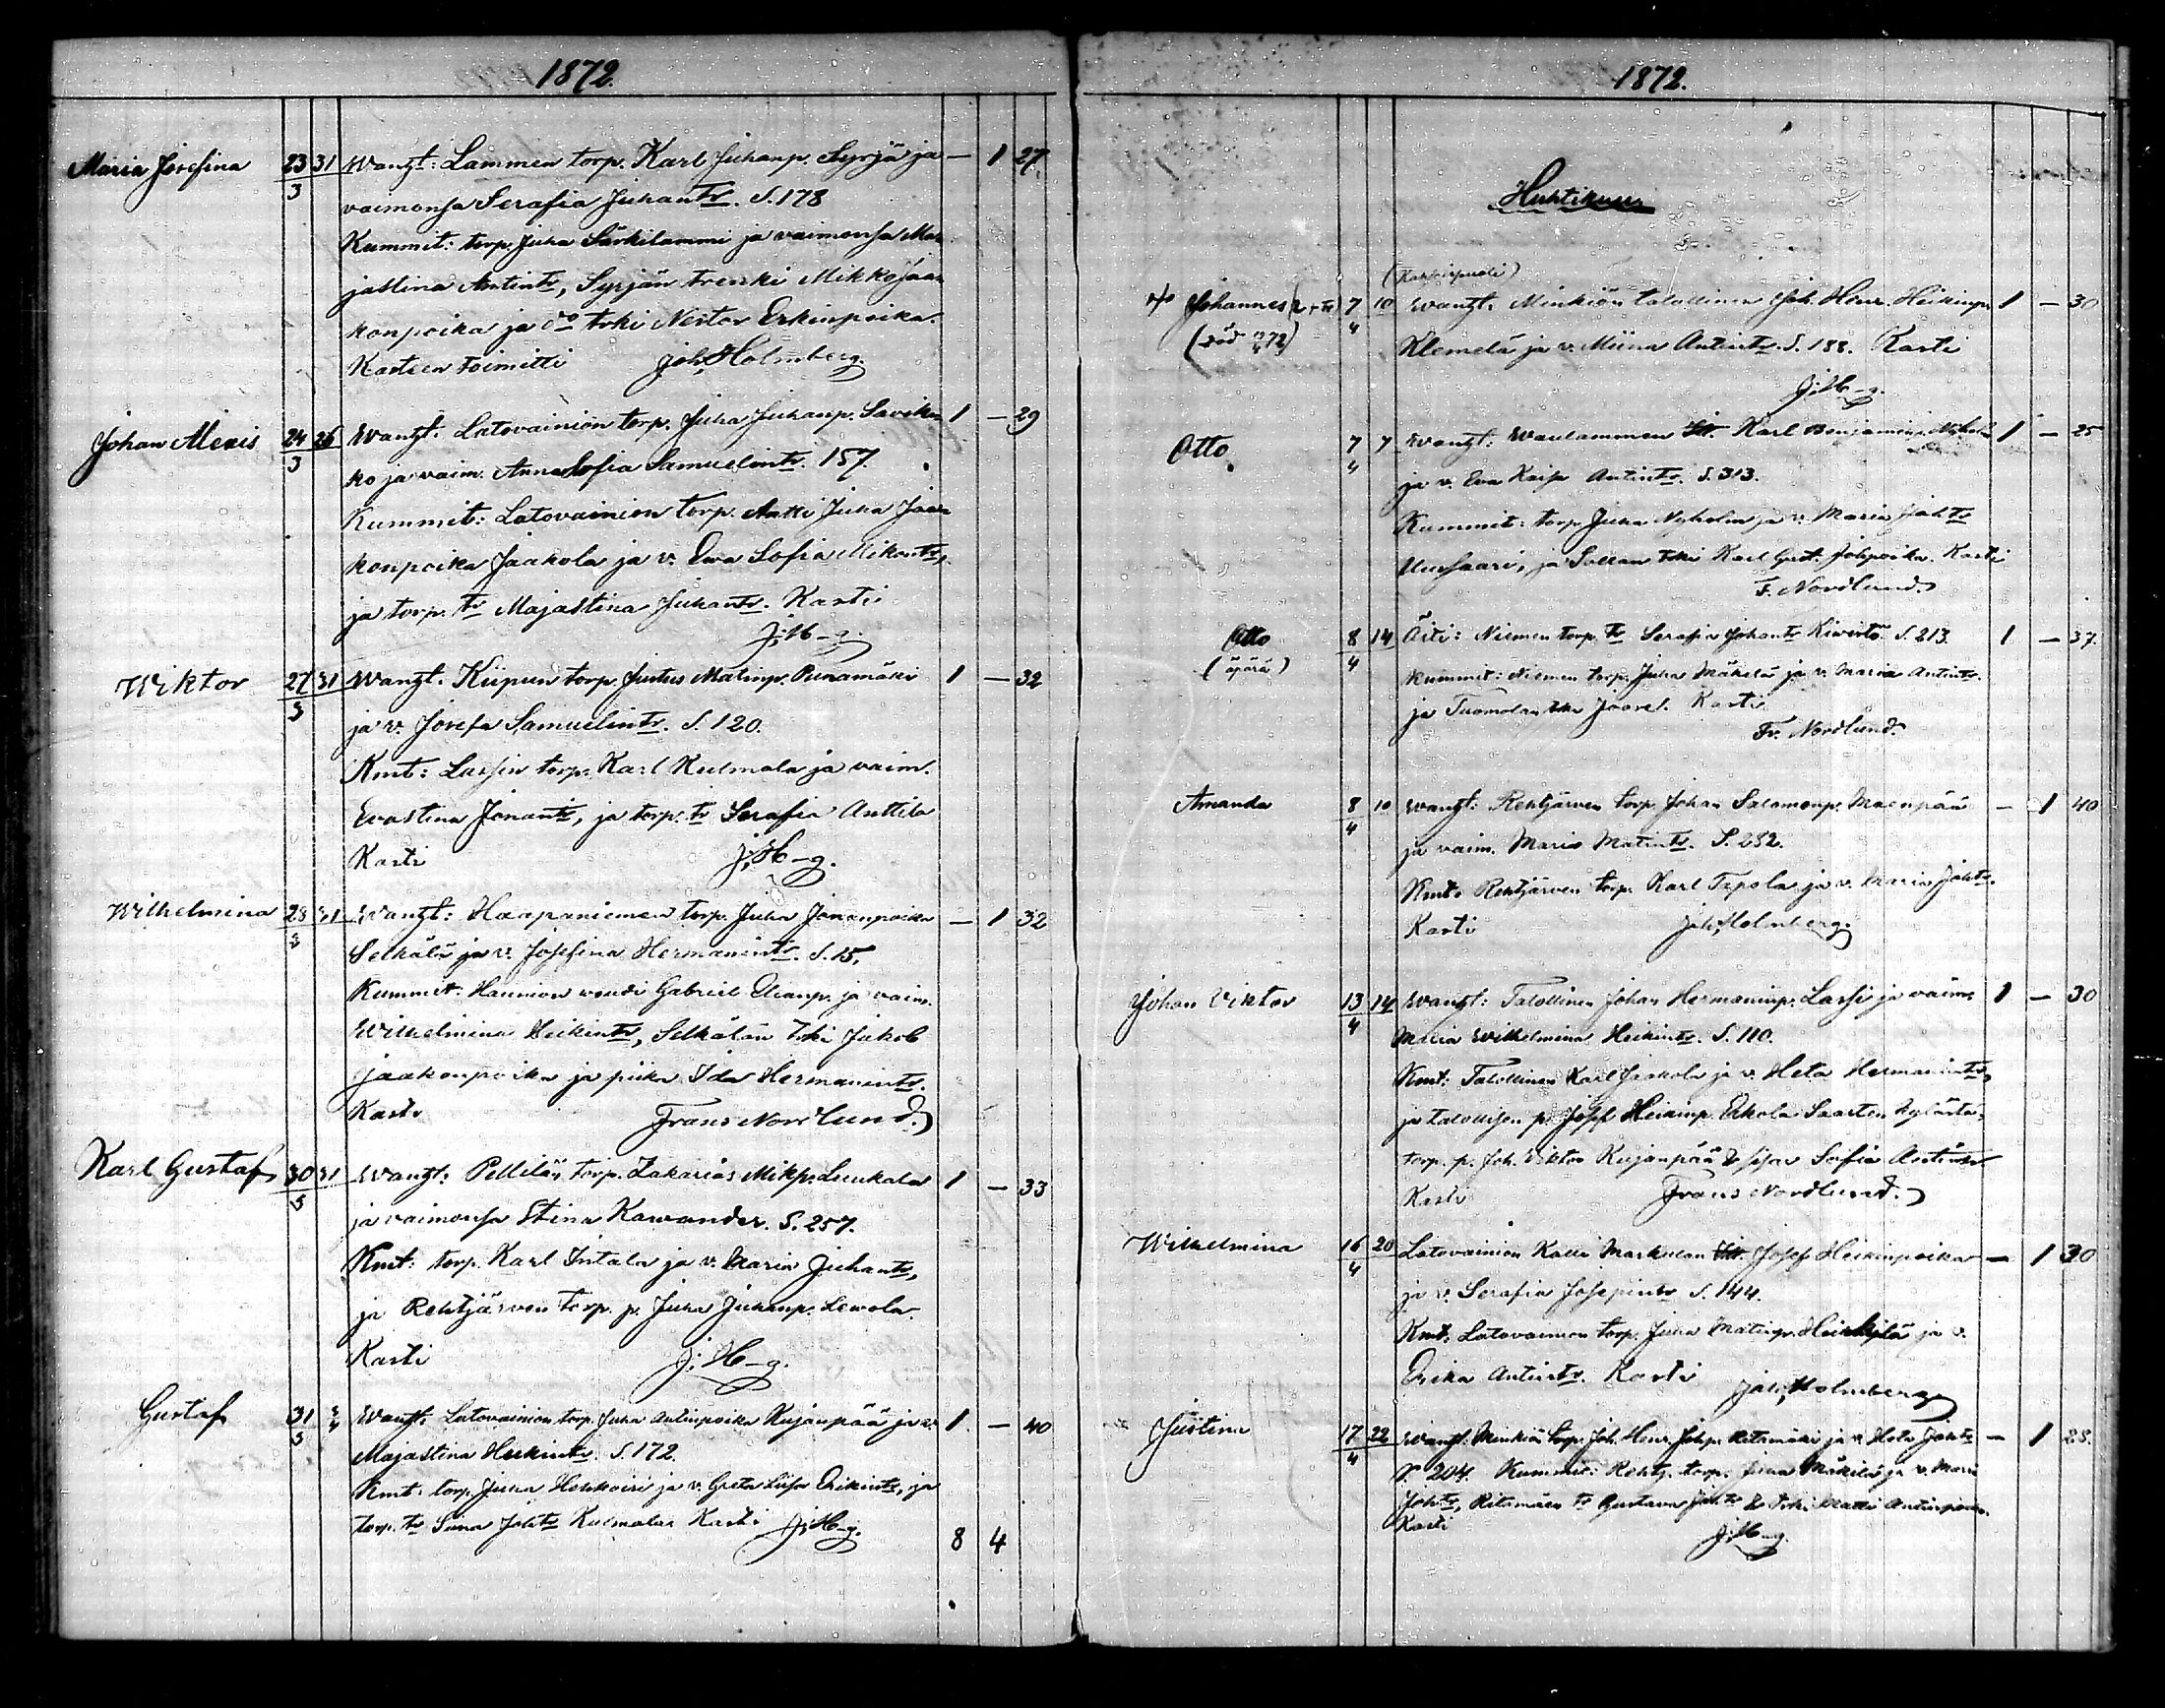 1872.
Maria Josefina 23/3 31 Wanht: Lammen torp. Karl Juhanp. Syrjä ja — 1 27
vaimonsa Serafia Juhantr. S. 178
Kummit: torp. Juha Särkilammi ja vaimonsa Ma-
jastina Antintr, Syrjän trenki Mikko Jaa-
konpoika ja do trki Nestor Erkinpoika.
Kasteen toimitti Joh. Holmberg.
Johan Alexis 24/3 26 Wanht. Latovainion torp. Juha Juhanp. 1 — 29
ko ja vaim. Anna Sofia Samuelintr. 157.
Kummit: Latovainion torp. Antti Juha Jaa-
konpoika Jaakola ja v. Ewa Sofia Mikontr,
ja torp. tr Majastina Juhantr. Kasti
J. H-g.
Wiktor 27/3 31 Wanht. Kiipun torp. Justus Matinp. Punamäki 1 — 32
ja v. Josefa Samuelintr. S. 120.
Kmt: Lassin torp. Karl Kulmala ja vaim.
Evastina Jonantr, ja torp. tr Serafia Anttila
Kasti J. H-g.
Wilhelmina 28/3 31 Wanht: Haapaniemen torp. Juha Jonanpoika — 1 32
Selkälä ja v. Josefina Hermanintr. S. 15.
Kummit: Haunion woudi Gabriel Elianp. ja vaim.
Wilhelmina Heikintr, Selkälän trki Jakob
Jaakonpoika ja piika Ida Hermanintr.
Kasti Frans Nordlund.
Karl Gustaf 30/3 31 Wanht: Pellilän torp. Zakarias Mikp. Luukala 1 — 33
ja vaimonsa Stina Kawander. S. 257.
Kmt: torp. Karl Intala ja v. Maria Juhantr,
ja Rehtjärven torp. p. Juha Juhanp. Lewola.
Kasti J. H-g.
Gustaf 31/3 3/4 Wanht: Latovainion torp. Juha Antinpoika Kujanpää ja v. 1 — 40
Majastina Heikintr. S. 172.
Kmt: torp. Juha ja v. Greta Liisa Erikintr, ja
torp. tr Johtr Kulmala Kasti J. H-g.
8 4
1872.
Huhtikuu
Johannes 7/4 10 Wanht. Minkiön talollinen Joh. Henr. Heikinp. 1 — 30
(död 72) Klemelä ja v. Miina Antintr. S. 188. Kasti
J. H-g.
Otto 7/4 7 Wanht: Waulammen Karl Benjaminp. 1 — 25
ja v. Eva Kaisa Antintr. S. 313.
Kummit: torp. Juha Nyholm ja v. Maria Johtr
Uusisaari, ja trki Karl Gust. Johpoika. Kasti
F. Nordlund.
Otto 8/4 14 Äiti: Niemen torp. tr Serafia Johantr Kiwistö S. 213. 1 — 37.
(äpärä) Kummit: Niemen torp. Juha Mäkelä ja v. Maria Antintr.
ja Tuomolan Kasti
Fr. Nordlund.
Amanda 8/4 10 Wanht: Rehtjärven torp. Johan Salomonp. Maenpää — 1 40
ja vaim. Maria Matintr. S. 252.
Kmt: Rehtjärven torp. Karl Tapola ja v. Maria Johtr.
Kasti Joh. Holmberg.
Johan Viktor 13/4 14 Wanht: Talollinen Johan Hermaninp. Lassi ja vaim. 1 — 30
Maria Wilhelmina Heikintr. S. 110.
Kmt: Talollinen Karl Jaakola ja v. Heta Hermanintr,
ja talollisen p. Josef Heikinp. Erkola Saarten kylästä,
torp. p. Joh. Viktor Kujanpää & Sofia Antintr.
Kasti Frans Nordlund.
Wilhelmina 16/4 20 Latovainion Kalle Markulan Josef Heikinpoika — 1 30
ja v. Serafia Josepintr S. 144.
Kmt. Latovainion torp. Juha Matinp. ja v.
Erika Antintr. Kasti Joh. Holmberg
Justina 17/4 22 Wanht: Minkiön torp. Joh. Henr. Johp. Ritamäki ja v. Heta Johtr — 1 28.
S. 204. Kummit: Rehtj. torp. Juha Mäkilä ja v. Maria
Johtr, Ritamäen tr Gustava Johtr & trki Matti Antinpoika.
Kasti J. H-g